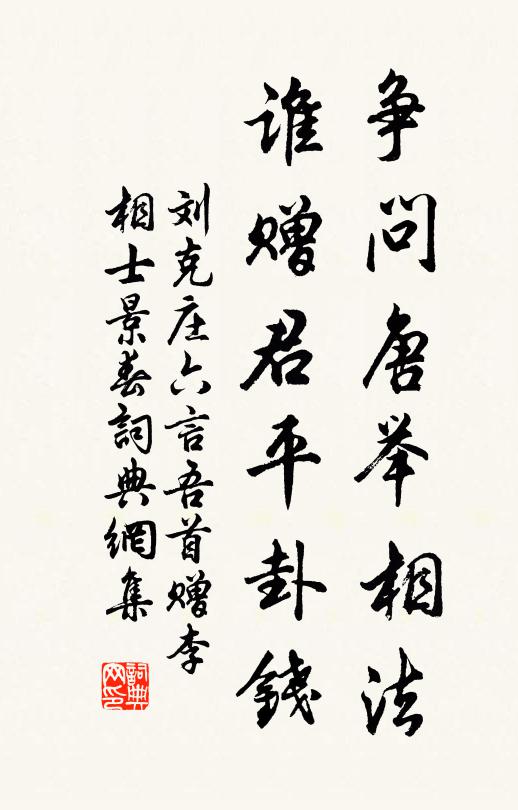 争问唐举相法
谁赠君平卦錢
刘克庄六言吾首赠李
相士景春詞典網集
詞典
网印